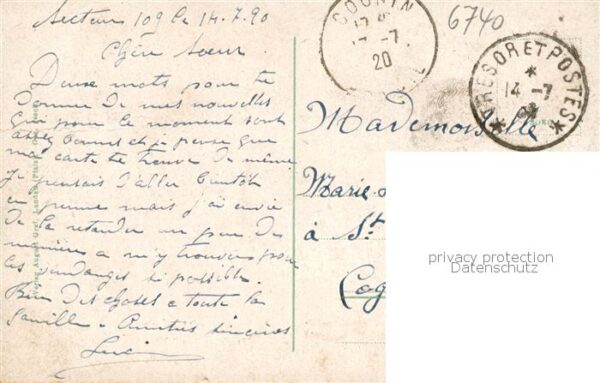 Secteur 109 le 14.7.20
Chère Soeur
Deux mots pour te
donner de mes nouvelles
qui pour le moment sont
assez bonnes et je pense que
ma carte te trouve de même
je pensais d'aller bientôt
en perme mais j'ai envie
de la retarder un peu de
manière a m'y trouver pour
les vendanges si possible.
Bien des choses a toute la
famille. Amitiés sincères
6740
20
TRESOR ET POSTES
14 -7
Mademoiselle
Marie
à St
Cog
privacy protection
Datenschutz